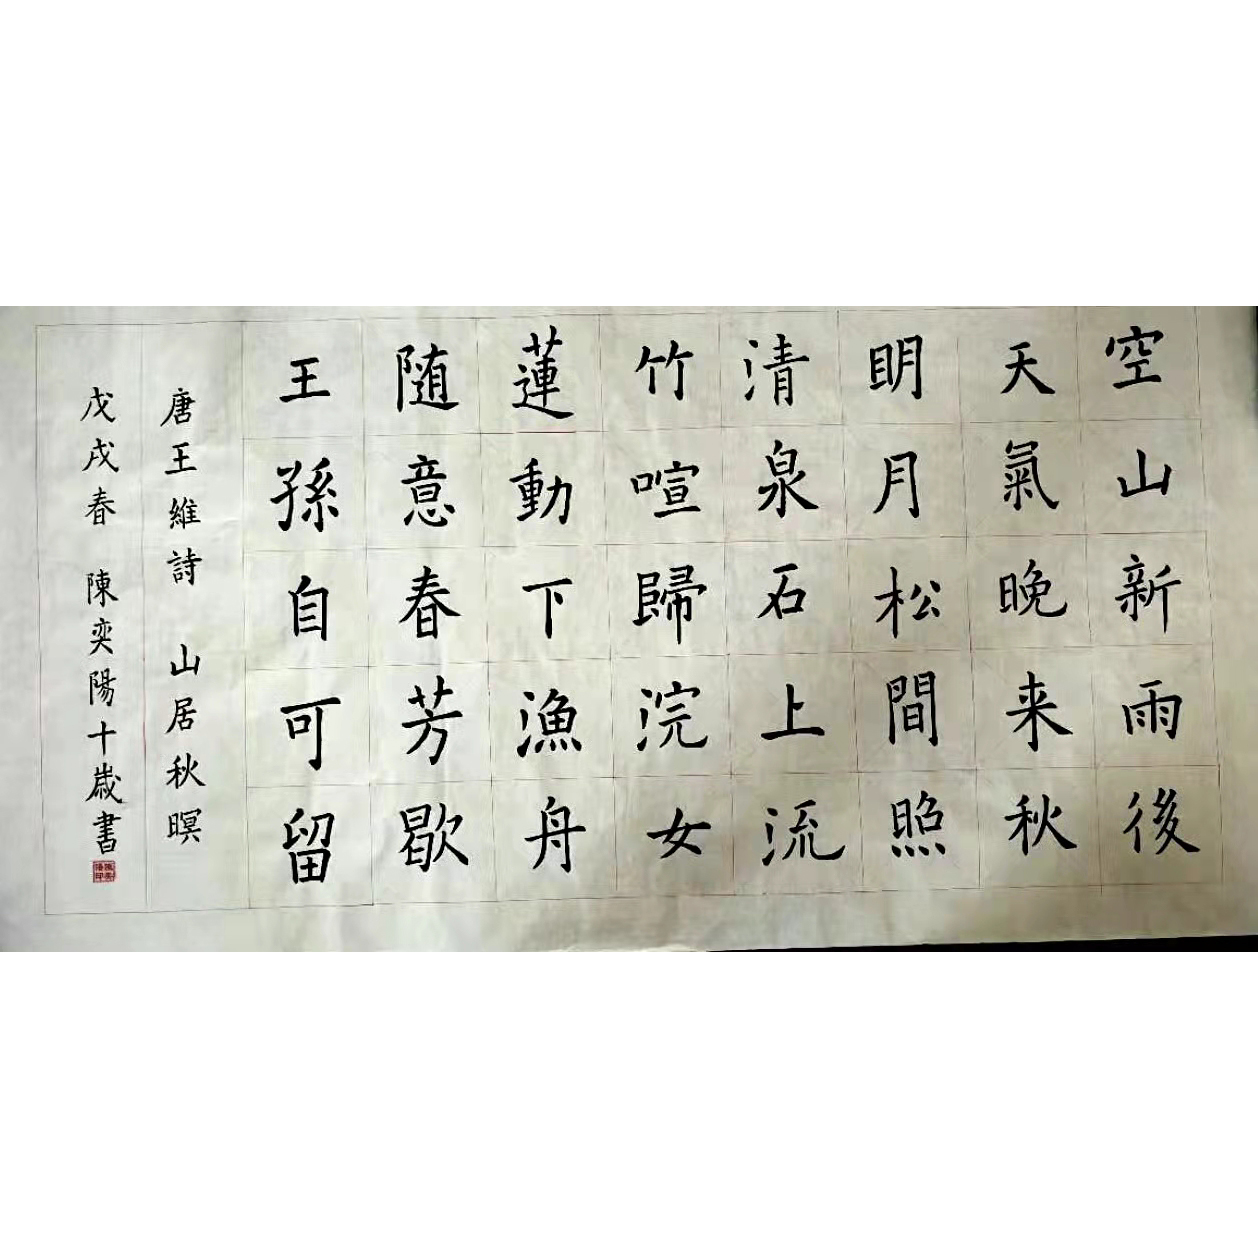 空山新雨後
天氣晚来秋
明月松間照
清泉石上流
竹喧歸浣女
蓮動下漁舟
随意春芳歇
王孫自可留
唐王維詩 山居秋暝
戊戌春 陳奕陽十歲書